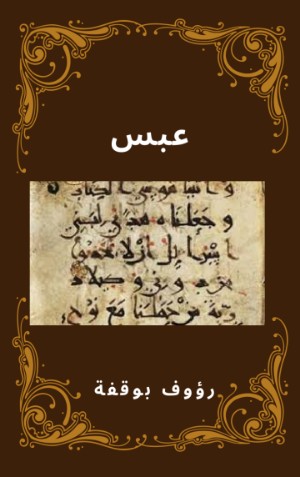 عبس
و اتينا موسى الكتاب
و جعلناه هدى لبنى
اسرايل الا تتخذوا
من دونى وكيلا
ذرية من حملنا مع نوح
رؤوف بوقفة